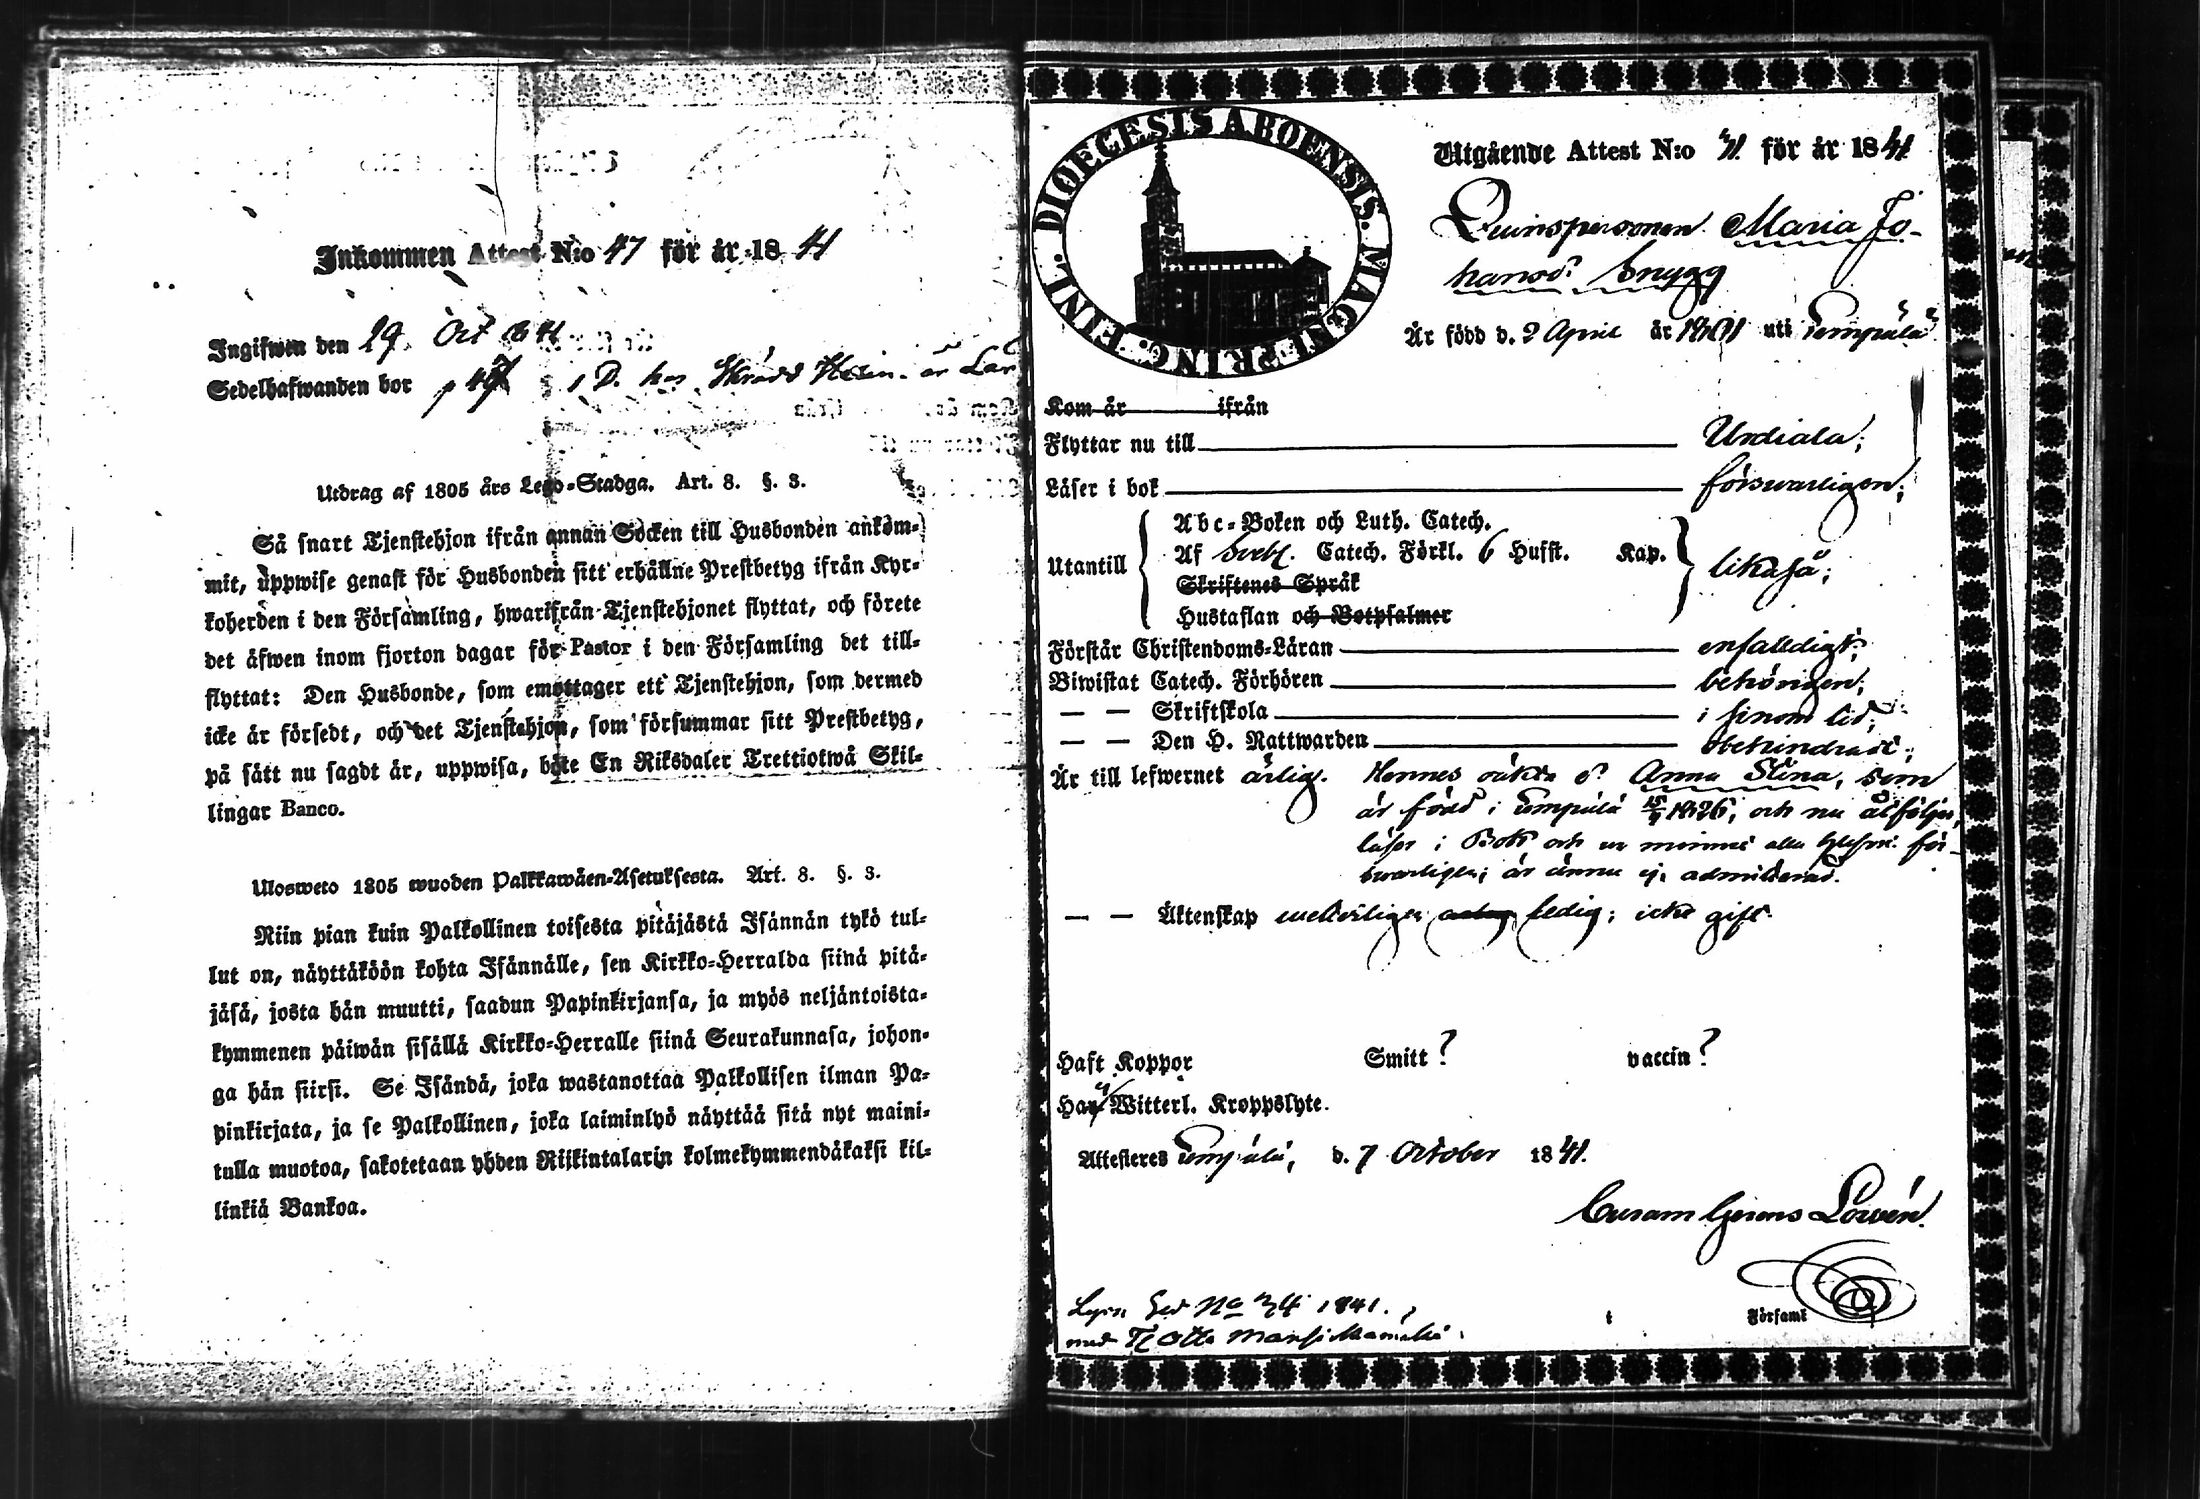 Inkommen Attest N:o 47 för år 1841
Ingifwen den 29. Oct 1841
Sedelhafwanden bor
Utdrag af 1805 års Lego-Stadga. Art. 8. §. 3.
Så snart Tjenstehjon ifrån annan Socken till Husbonden ankom-
mit, uppwise genast för Husbonden sitt erhållne Prestbetyg ifrån Kyr-
koherden i den Församling, hwarifrån Tjenstehjonet flyttat, och förete
det äfwen inom fjorton dagar för Pastor i den Församling det till-
flyttat: Den Husbonde, som emottager ett Tjenstehjon, som dermed
icke är försedt, och det Tjenstehjon, som försummar sitt Prestbetyg,
på sätt nu sagdt är, uppwisa, böte En Riksdaler Trettiotwå Skil-
lingar Banco.
Ulosweto 1805 wuoden Palkkawäen-Asetuksesta. Art. 8. §. 3.
Niin pian kuin Palkollinen toisesta pitäjästä Isännän tykö tul-
lut on, näyttäköön kohta Isännälle, sen Kirkko-Herralda siinä pitä-
jäsä, josta hän muutti, saadun Papinkirjansa, ja myös neljäntoista-
kymmenen päiwän sisällä Kirkko-Herralle siinä Seurakunnasa, johon-
ga hän siirsi. Se Isändä, joka wastanottaa Palkollisen ilman Pa-
pinkirjata, ja se Palkollinen, joka laiminlyö näyttää sitä nyt maini-
tulla muotoa, sakotetaan yhden Riikintalarin kolmekymmendäkaksi kil-
linkiä Bankoa.
DIOECESIS ABOENSIS. MAGNI PRINC. FINL.
Utgående Attest N:o 71. för år 1841
Quinspersonen Maria Jo-
hansd:r Snygg
Är född d. 2 April år 1801 uti Lempälä
Kom år ifrån
Flyttar nu till Urdiala;
Läser i bok förswarligen;
Utantill
Abc-Boken och Luth. Catech.
Af Svebl. Catech. Förkl. 6 Hufst. Kap.
likaså;
Skriftenes Språk
Hustaflan och Botpsalmer
Förstår Christendoms-Läran enfalldigt;
Biwistat Catech. Förhören behörigen;
— — Skriftskola i sinom tid;
— — Den H. Nattwarden obehindradt;
Är till lefwernet ärlig. Hennes oäkta d:r Anna Stina, som
är född i Lempälä 1826, och nu åtföljer,
läser i Bok och ur minnet för-
swarligen; är ännu ej admitterad.
— — Äktenskap ledig; icke gift
Haft Koppor Smitt? vaccin?
Har ej Witterl. Kroppslyte.
Attesteres Lempälä, d. 7 October 1841.
Curam Gerens Lowén.
Församl
Lysn Sed No 34 1841.
med